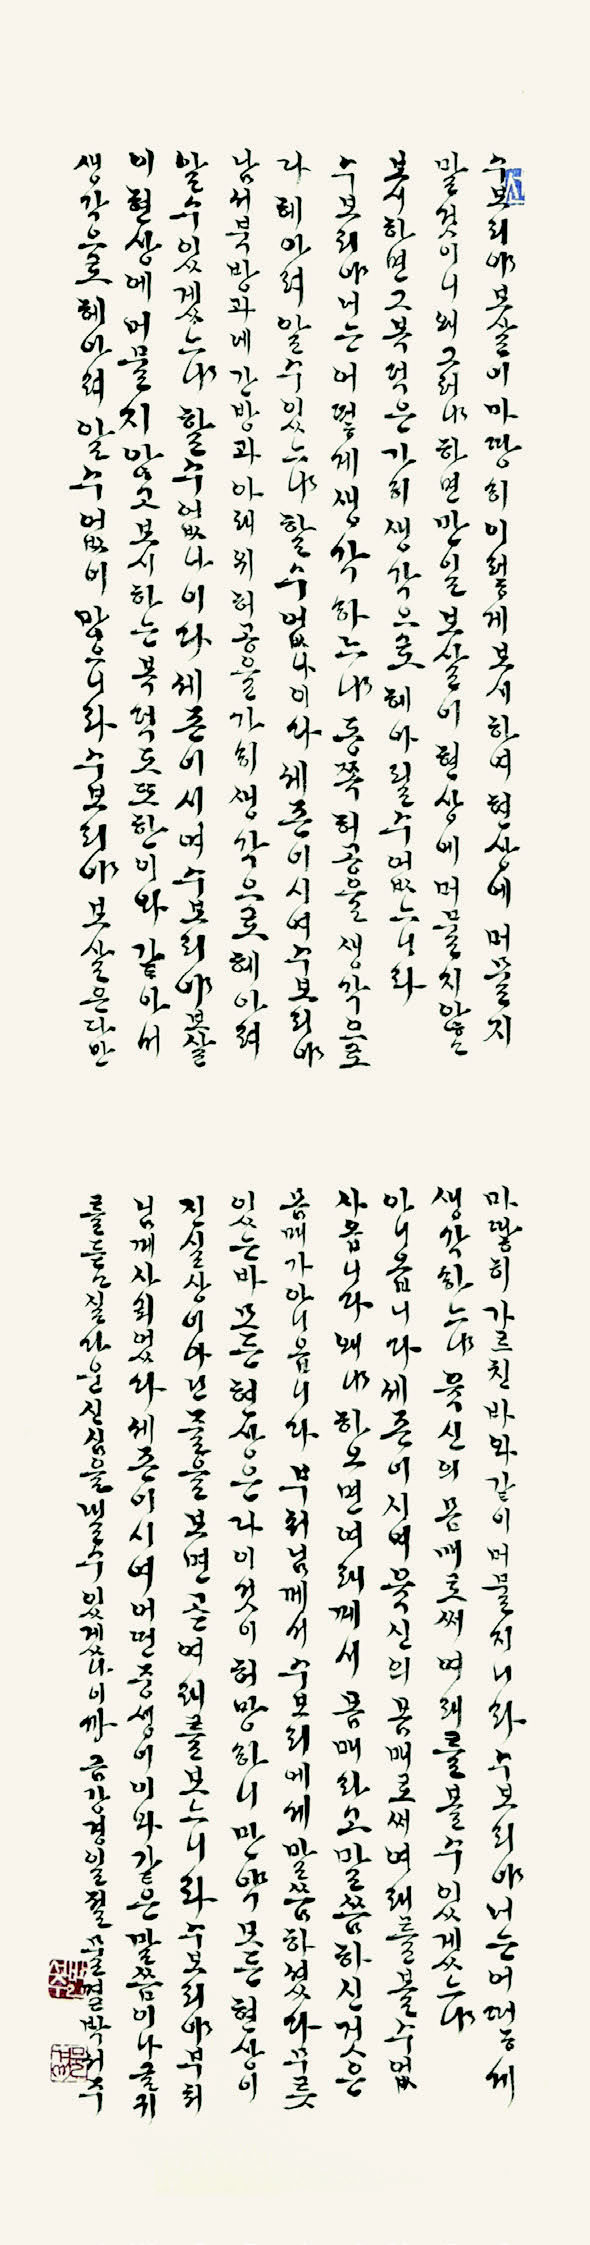 수보리야 보살이 마땅히 이렇게 보시하여 현상에 머물지
말것이니 왜 그러냐 하면 만일 보살이 현상에 머물지 않은
보시하면 그 복덕은 가히 생각으로 헤아릴 수 없느니라
수보리야 너는 어떻게 생각하느냐 동쪽 허공을 생각으로
다 헤아려 알 수 있느냐 할 수 없나이다 세존이시여 수보리야
남서북방과 네 간방과 아래 위 허공을 가히 생각으로 헤아려
알 수 있겠느냐 할 수 없나이다 세존이시여 수보리야 보살
이 현상에 머물지 않고 보시하는 복덕도 또한 이와 같아서
생각으로 헤아려 알 수 없이 많으니라 수보리야 보살은 다만
마땅히 가르친 바와 같이 머물지니라 수보리야 너는 어떻게
생각하느냐 육신의 몸매로써 여래를 볼 수 있겠느냐
아니옵니다 세존이시여 육신의 몸매로써 여래를 볼 수 없
사옵니다 왜냐 하오면 여래께서 몸매라고 말씀하신 것은
몸매가 아니옵니다 부처님께서 수보리에게 말씀하셨다 무릇
있는 바 모든 현상은 다 이것이 허망하니 만약 모든 현상이
진실상이 아닌 줄을 보면 곧 여래를 보느니라 수보리야 부처
님께 사뢰었다 세존이시여 어떤 중생이 이와 같은 말씀이나 글귀
를 듣고 참다운 신심을 낼 수 있겠나이까 금강경 일절 꽃뜰 박천주